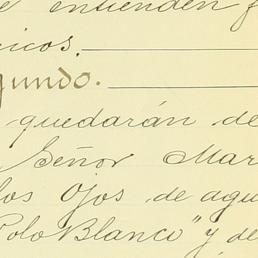 entienden
icos.
gundo.
quedarán de
Señor Mar
los Ojos de agu
Polo Blanco" y de